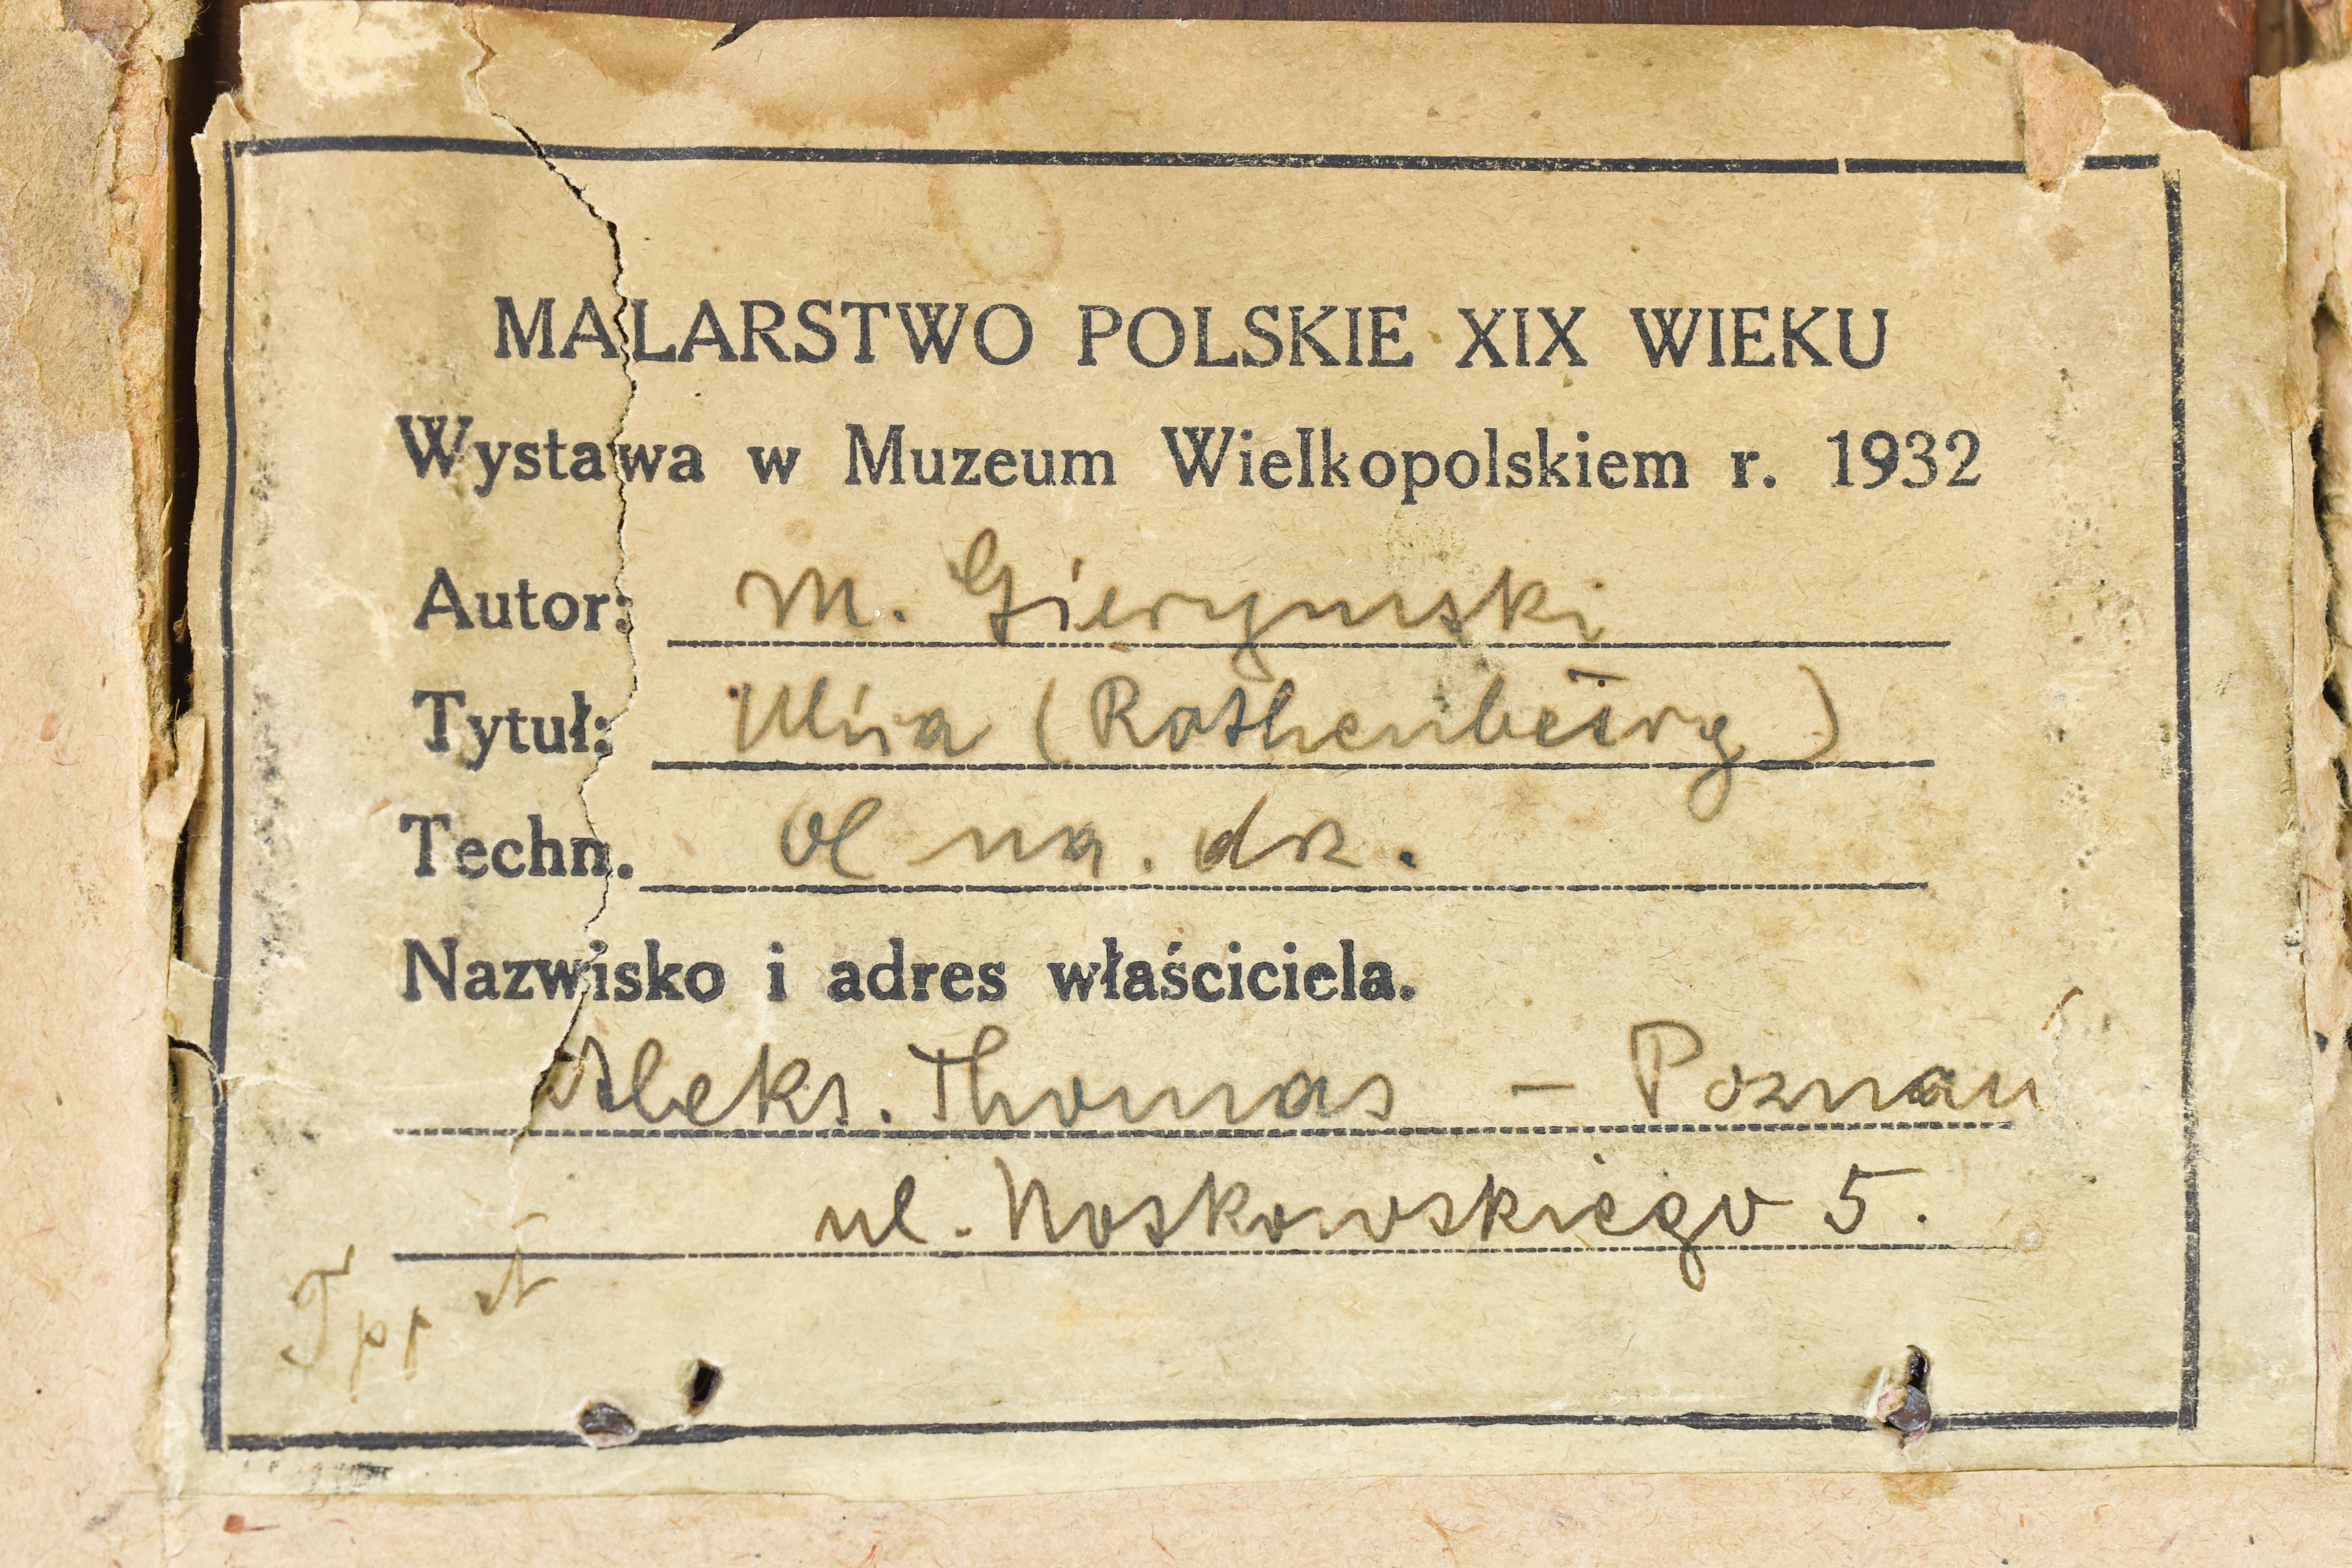 MALARSTWO POLSKIE XIX WIEKU
Wystawa w Muzeum Wielkopolskiem r. 1932
Autor: M. Gierymski
Tytuł: Ulica (Rothenburg)
Techn. Ol na. drz.
Nazwisko i adres właściciela.
Aleks. Thomas – Poznań
ul. Noskowskiego 5.